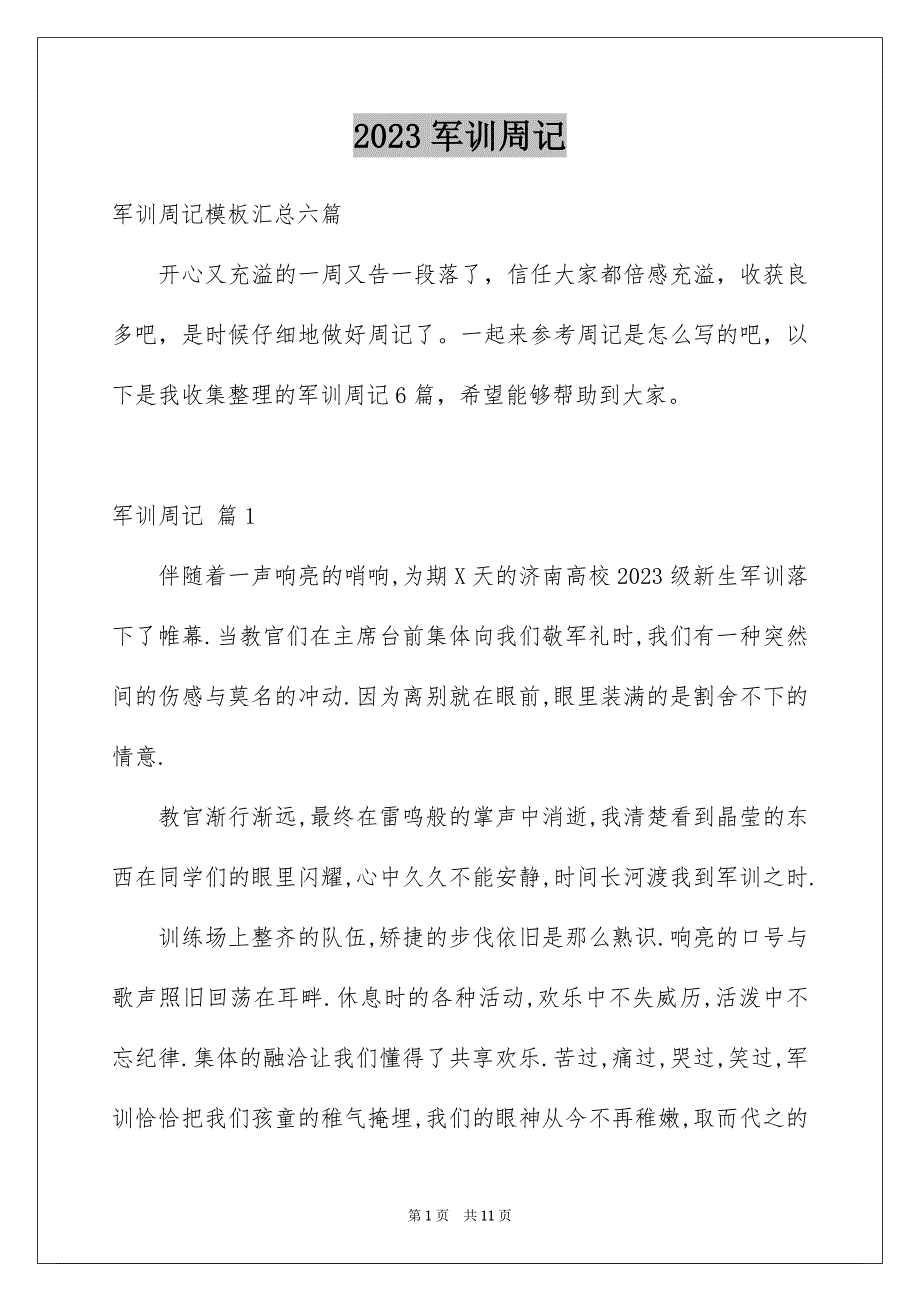 2023军训周记
军训周记模板汇总六篇
开心又充溢的一周又告一段落了，信任大家都倍感充溢，收获良
多吧，是时候仔细地做好周记了。一起来参考周记是怎么写的吧，以
下是我收集整理的军训周记6篇，希望能够帮助到大家。
军训周记 篇1
伴随着一声响亮的哨响,为期X天的济南高校2023级新生军训落
下了帷幕.当教官们在主席台前集体向我们敬军礼时,我们有一种突然
间的伤感与莫名的冲动.因为离别就在眼前,眼里装满的是割舍不下的
情意.
教官渐行渐远,最终在雷鸣般的掌声中消逝,我清楚看到晶莹的东
西在同学们的眼里闪耀,心中久久不能安静,时间长河渡我到军训之时.
训练场上整齐的队伍,矫捷的步伐依旧是那么熟识.响亮的口号与
歌声照旧回荡在耳畔.休息时的各种活动,欢乐中不失威历,活泼中不
忘纪律.集体的融洽让我们懂得了共享欢乐.苦过,痛过,哭过,笑过,军
训恰恰把我们孩童的稚气掩埋,我们的眼神从今不再稚嫩,取而代之的
第1页 共11页